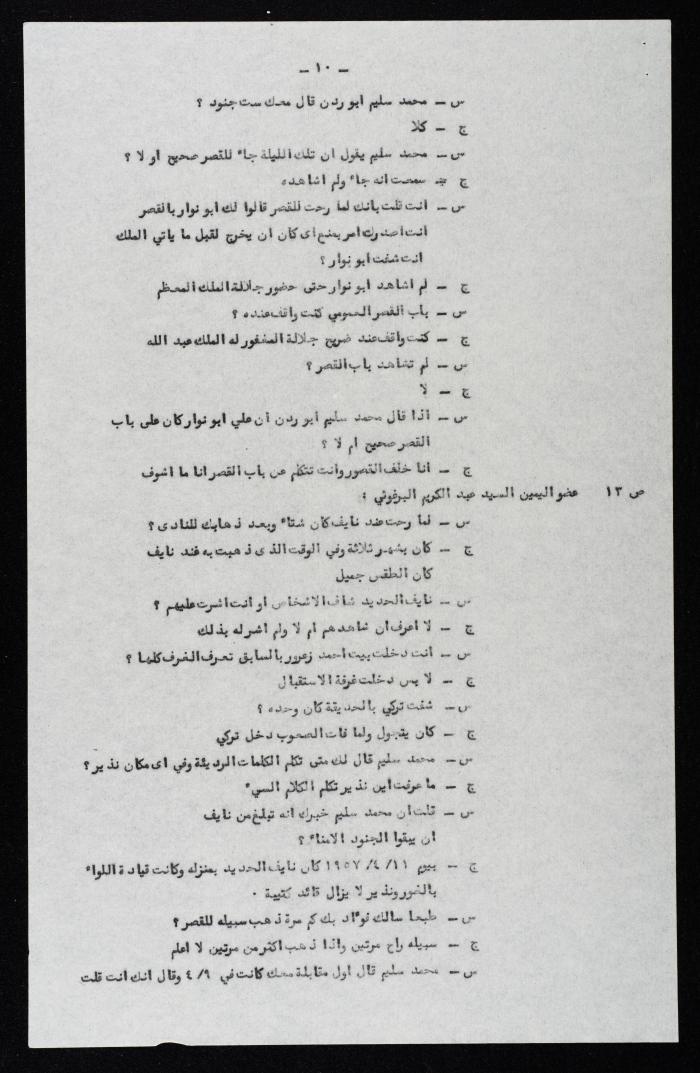 – ١٠ –
س – محمد سليم ابو ردن قال معك ست جنود ؟
ج – كلا
س – محمد سليم يقول ان تلك الليلة جاء للقصر صحيح او لا ؟
ج – سمعت انه جاء ولم اشاهده
س – انت قلت بانك لما رحت للقصر قالوا لك ابو نوار بالقصر
انت اصدرت امر بمنع اى كان ان يخرج لقبل ما ياتي الملك
انت شفت ابو نوار ؟
ج – لم اشاهد ابو نوار حتى حضور جلالة الملك المعظم
س – باب القصر العمومي كنت واقف عنده ؟
ج – كنت واقف عند ضريح جلالة المغفور له الملك عبد الله
س – لم تشاهد باب القصر ؟
ج – لا
س – اذا قال محمد سليم ابو ردن ان علي ابو نوار كان على باب
القصر صحيح ام لا ؟
ج – انا خلف القصور وانت تتكلم عن باب القصر انا ما اشوف
ص ١٣ عضو اليمين السيد عبد الكريم البرغوثي :
س – لما رحت عند نايف كان شتاء وبعد ذهابك للنادى ؟
ج – كان بشهر ثلاثة وفي الوقت الذى ذهبت به عند نايف
كان الطقس جميل
س – نايف الحديد شاف الاشخاص او انت اشرت عليهم ؟
ج – لا اعرف ان شاهدهم ام لا ولم اشر له بذلك
س – انت دخلت بيت احمد زعرور بالسابق تعرف الغرف كلها ؟
ج – لا بس دخلت غرفة الاستقبال
س – شفت تركي بالحديقة كان وحده ؟
ج – كان يتجول ولما فات الصعوب دخل تركي
س – محمد سليم قال لك متى تكلم الكلمات الرديئة وفي اى مكان نذير ؟
ج – ما عرفت اين نذير تكلم الكلام السيء
س – قلت ان محمد سليم خبرك انه تبلغ من نايف
ان يبقوا الجنود الامناء ؟
ج – بيوم ١١/ ٤/ ١٩٥٧ كان نايف الحديد بمنزله وكانت قيادة اللواء
بالغور ونذير لا يزال قائد كتيبة .
س – طبعا سالك فؤاد بك كم مرة ذهب سبيله للقصر ؟
ج – سبيله راح مرتين واذا ذهب اكثر من مرتين لا اعلم
س – محمد سليم قال اول مقابلة معك كانت في ٩/ ٤ وقال انك انت قلت